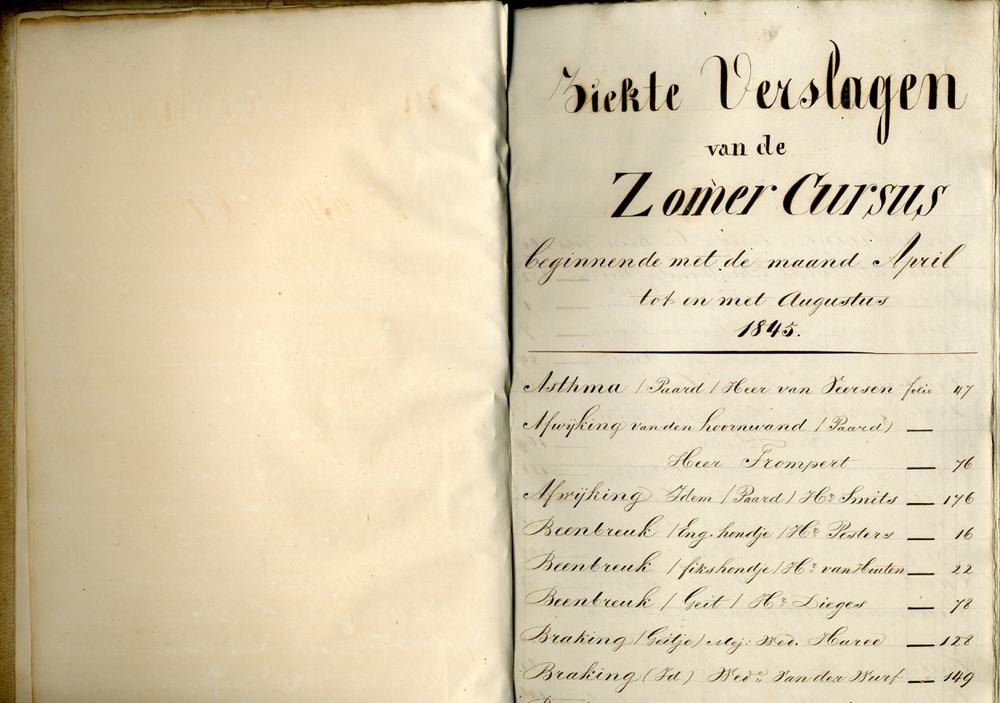 Ziekte Verslagen
van de
Zomer Cursus
beginnende met de maand April
tot en met Augustus
1845.
Asthma / Paard / Heer van Seersen folio 47
Afwijking van den hoornwand / Paard) —
Heer Trompert — 76
Afwijking Idem / Paard / Hr Smits — 176
Beenbreuk / Eng. hondje / Hr Pesters — 16
Beenbreuk / fikshondje / Hr van Houten — 22
Beenbreuk / Geit / Hr Dieges — 78
Braking / Geitje) Mej: Wed. — 128
Braking (Id) Wedw. van der Wurf — 149